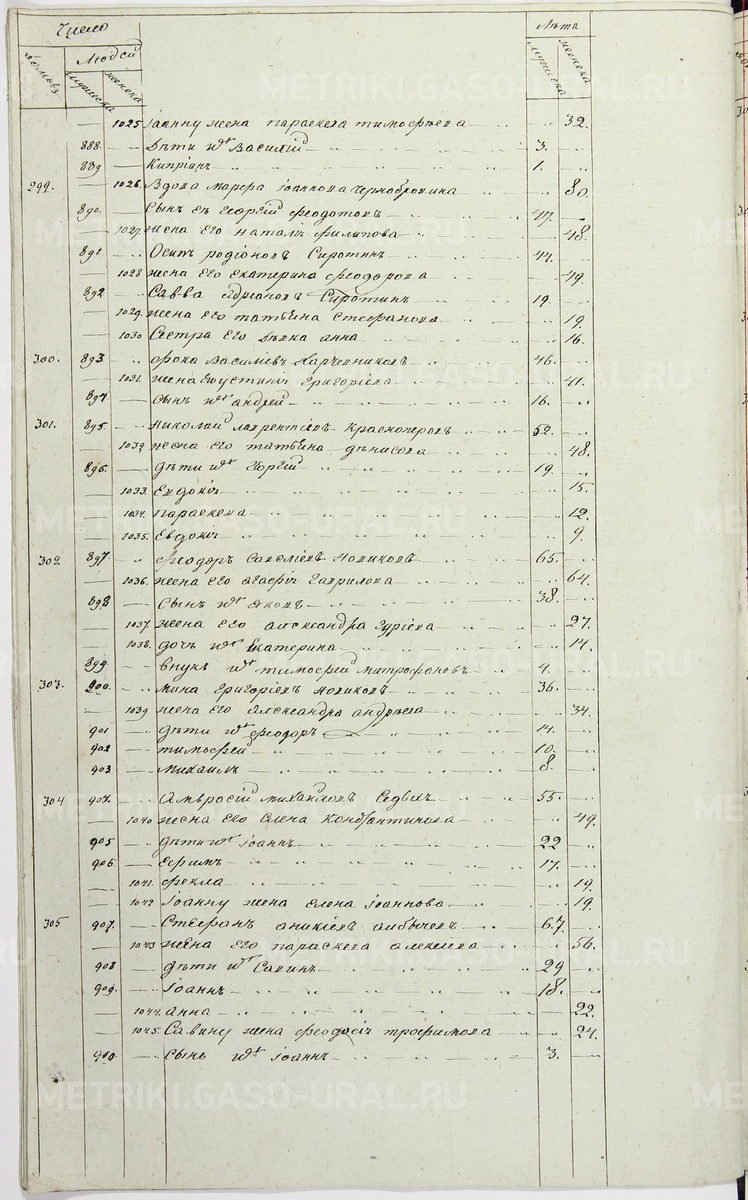 Число
Лѣта
Людей
домовъ
мужеска
женска
мужеска
женска
1025. Іоанну жена Параскева Тимофѣева 32.
888. Дѣти ихъ Василій 3.
889 Кипріанъ 1.
299. 1026. Вдова Марфа Іоаннова Чернобровина 80.
890. Сынъ ея Георгій Феодотовъ 47.
1027. жена его Наталія Филипова 48.
891 Осипъ Родіоновъ Сиротинъ 44.
1028 жена его Екатерина Феодорова 49.
892 Савва Адріановъ Сиротинъ 19.
1029. жена его Татьяна Стефанова 19.
1030 Сестра его дѣвка Анна 16.
300. 893 Фрока Василіевъ Харчевниковъ 46.
1031. жена Іоустинія Григоріева 41.
894 Сынъ ихъ Андрей 16.
301. 895. Николай Лаврентіевъ Красноперовъ 52.
1032 жена его Татьяна Дѣнисова 48.
896. Дѣти ихъ Георгій 19.
1033. Евдокія 15.
1034. Параскева 12.
1035. Евдокія 9.
302 897 Феодоръ Савеліевъ Новиковъ 65.
1036. жена его Агафія Гаврилова 64.
898 Сынъ ихъ Яковъ 38.
1037. жена его Александра Гуріева 27.
1038. дочь ихъ Екатерина 14.
899 Внукъ ихъ Тимофей Митрофановъ 4.
303. 900. Мина Григоріевъ Новиковъ 36.
1039 жена его Александра Андрѣева 34.
901 Дѣти ихъ Феодоръ 14.
902 Тимофей 10.
903 Михаилъ 8.
304 904. Амвросій Михайловъ 55.
1040 жена его Елена Константинова 49.
905 Дѣти ихъ Іоаннъ 22
906. Ефимъ 17.
1041. Фекла 19.
1042 Іоанну жена Елена Іоаннова 19.
305 907. Стефанъ Аникіевъ 67.
1043 жена его Параскева Алексіева 56.
908 Дѣти ихъ Савинъ 29
909. Іоаннъ 18.
1044. Анна 22.
1045. Савину жена Феодосія Трофимова 24.
910 Сынъ ихъ Іоаннъ 3.
METRIKI.GASO-URAL.RU